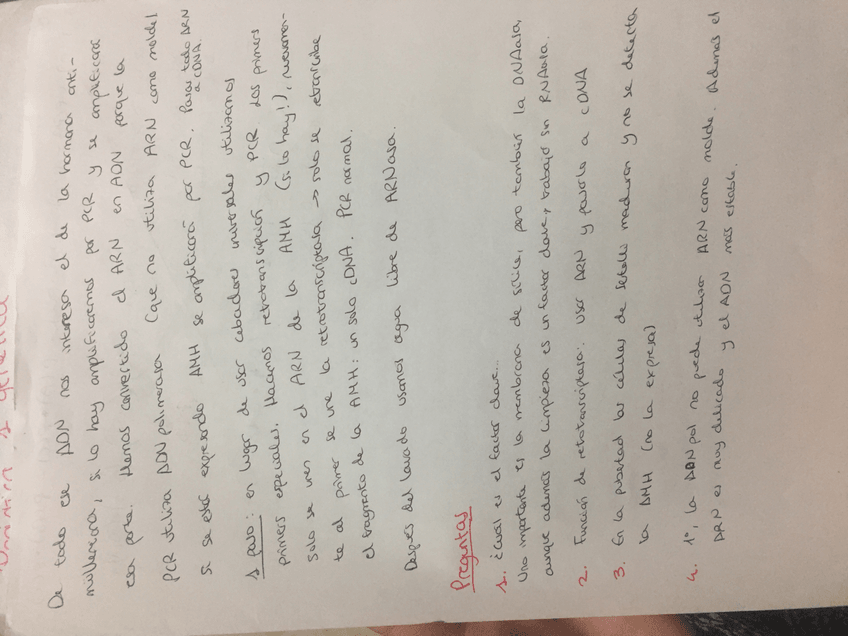 Práctica 1 genética
De todo ese ADN nos interesa el de la hormona anti-
mulleriana, si lo hay amplificaremos por PCR y se amplificará
esa parte. Hemos convertido el ARN en ADN porque la
PCR utiliza ADN polimerasa (que no utiliza ARN como molde)
Si se está expresando AMH se amplificará por PCR. Pasas todo ARN
a cDNA.
1 paso: en lugar de usar cebadores universales utilizamos
primers especiales. Hacemos retrotranscripción y PCR. Los primers
solo se unen en el ARN de la AMH (si lo hay!),
te al primer se une la retrotranscriptasa → solo se retranscribe
el fragmento de la AMH: un solo cDNA. PCR normal.
Después del lavado usamos agua libre de ARNasa.
Preguntas
1. ¿Cuál es el factor clave...
Uno importante es la membrana de sílice, pero también la DNAasa,
aunque además la limpieza es un factor clave, trabajo sin RNAasa.
2. Función de retrotranscriptasa: usar ARN y pasarlo a cDNA
3. En la pubertad las células de Sertolli maduran y no se detecta
la AMH (no la expresa)
4. 1º, la ADN pol no puede utilizar ARN como molde. Además el
ARN es muy delicado y el ADN más estable.